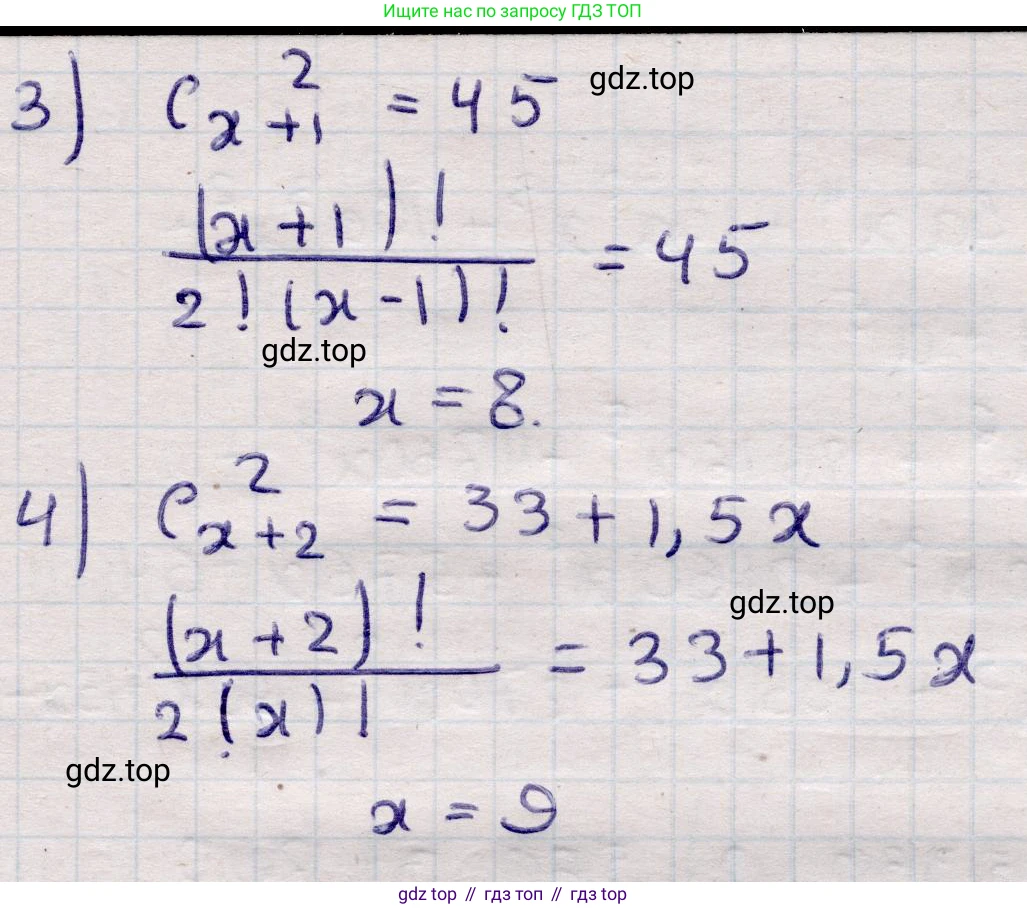 Ищите нас по запросу ГДЗ ТОП
3) C²ₓ₊₁ = 45
gdz.top
(x+1)! / 2!(x-1)! = 45
gdz.top
x = 8.
4) C²ₓ₊₂ = 33 + 1,5x
gdz.top
(x+2)! / 2!(x)! = 33 + 1,5x
gdz.top
x = 9
gdz top // гдз топ // gdz top